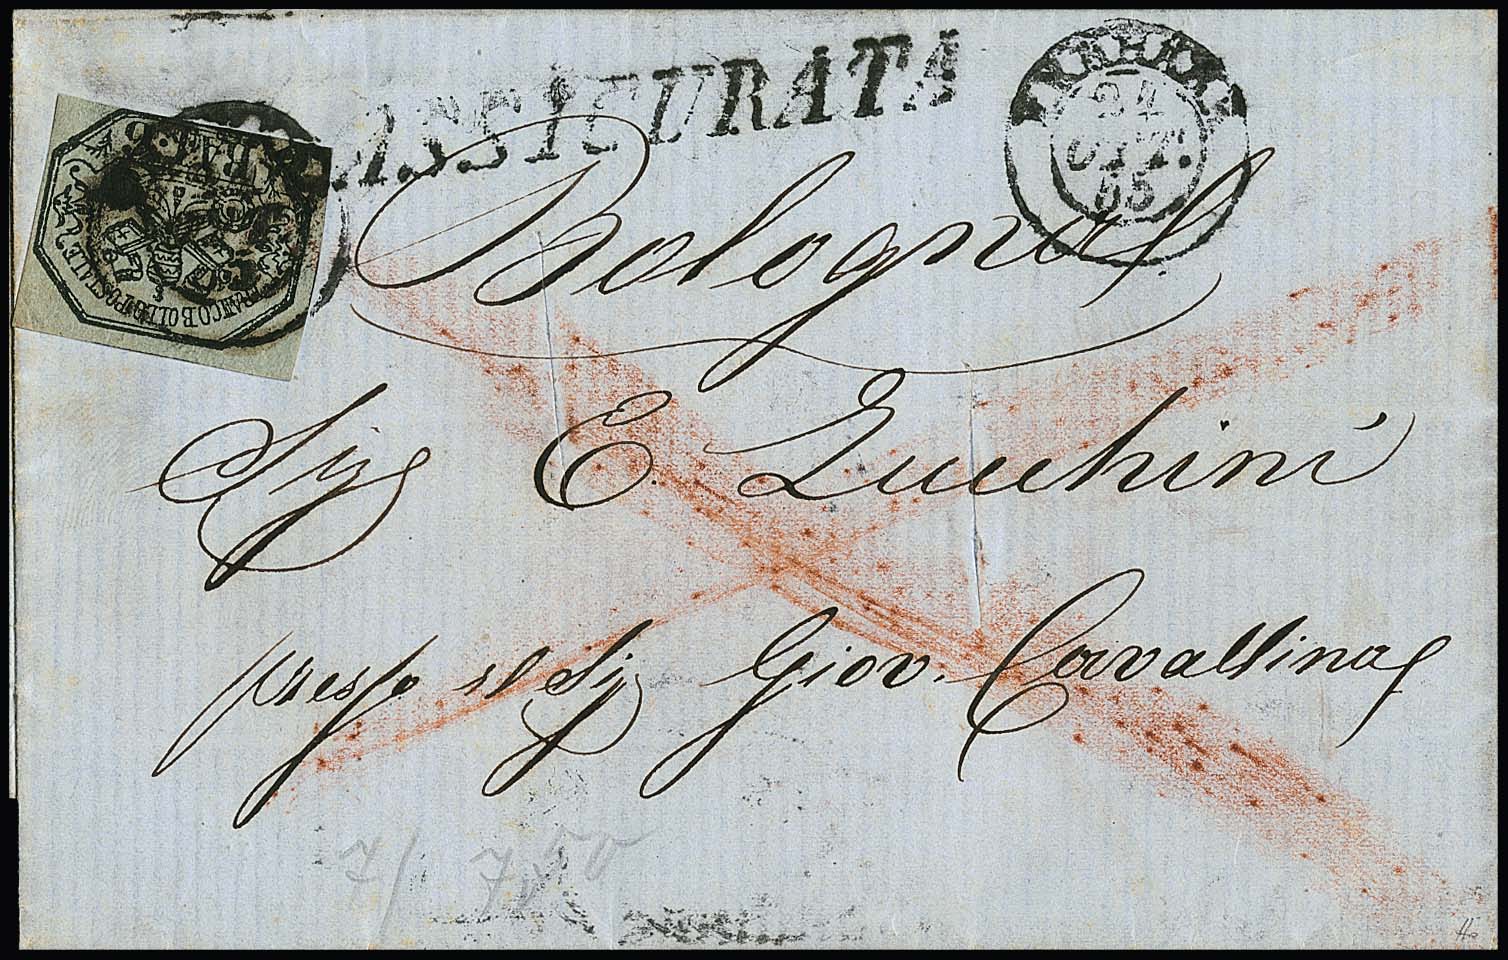 ASSICURATA
FERRARA
24
OTT.
55
BAJ 6
FRANCO BOLLO POSTALE
Bologna
Sig E. Zucchini
presso il Sig Giov. Cavallina
7/ 7,50